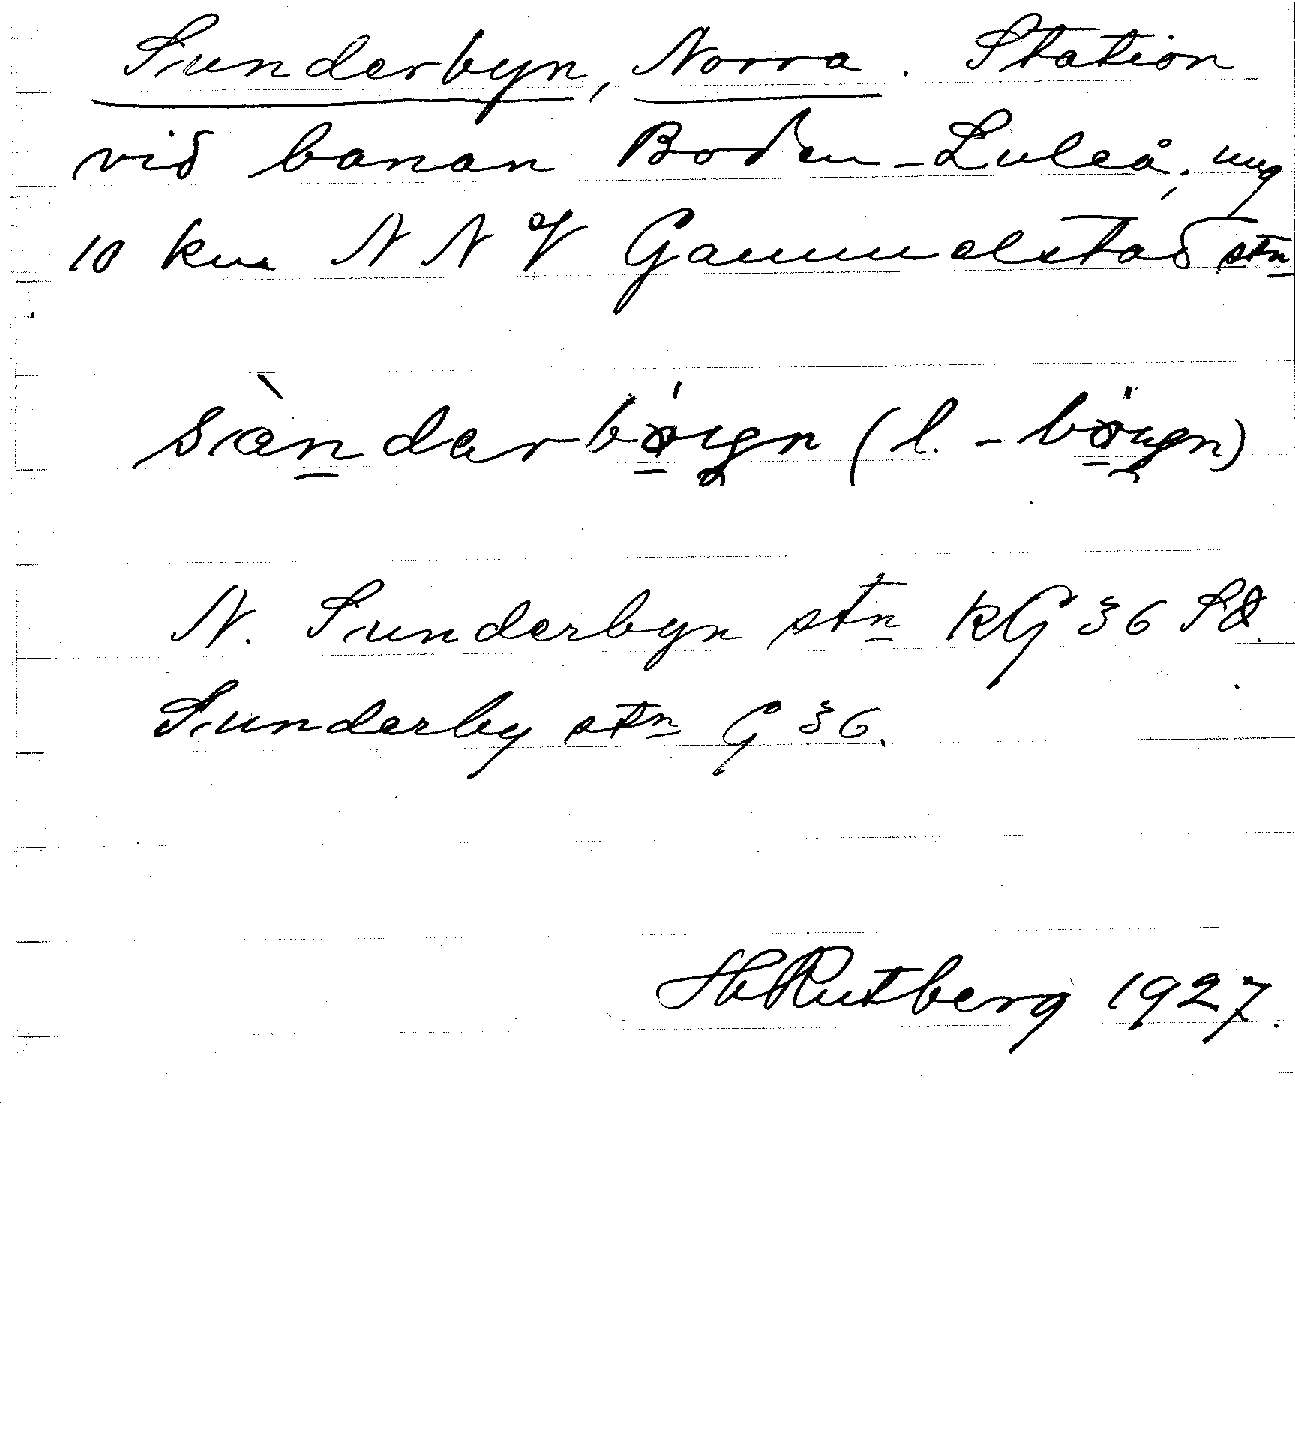 Sunderbyn, Norra. Station
vid banan Boden-Luleå, ung
10 km NNV Gammelstad stn
(l.
N. Sunderbyn stn KG 36 Sö.
Sunderby stn G 36.
H Rutberg 1927.